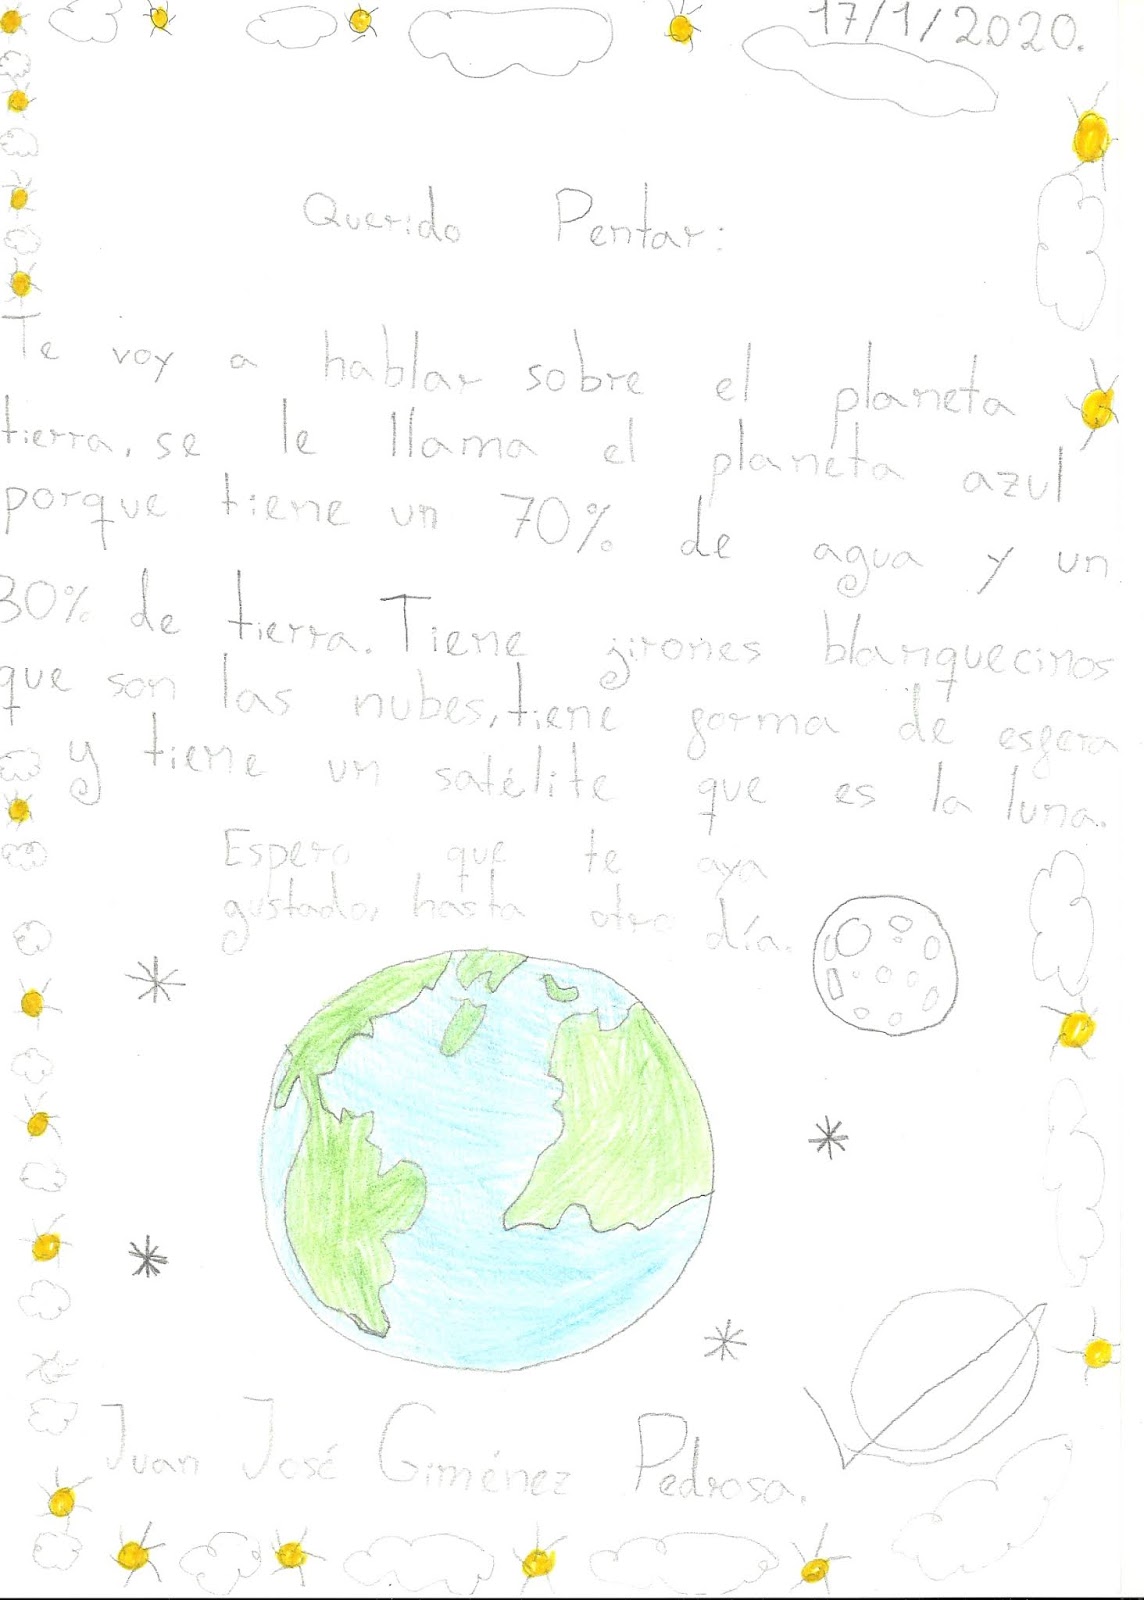 17/1/2020.
Querido Pentar:
Te voy a hablar sobre el planeta
tierra, se le llama el planeta azul
porque tiene un 70% de agua y un
30% de tierra. Tiene jirones blanquecinos
que son las nubes, tiene forma de esfera
y tiene un satélite que es la luna.
Espero que te aya
gustado, hasta otro día.
Juan José Giménez Pedrosa.